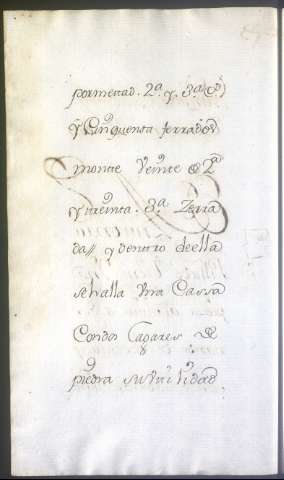 por mettad. 2ª. y. 3ª. Cd
y Cinqᵗᵃ quenta ferrados
monte Veinte de 2ª
y treinta. 3ª. Zerra
da// y dentro deella
sehalla Una Cassa
Con dos Lagares de
piedra su Vtilidad